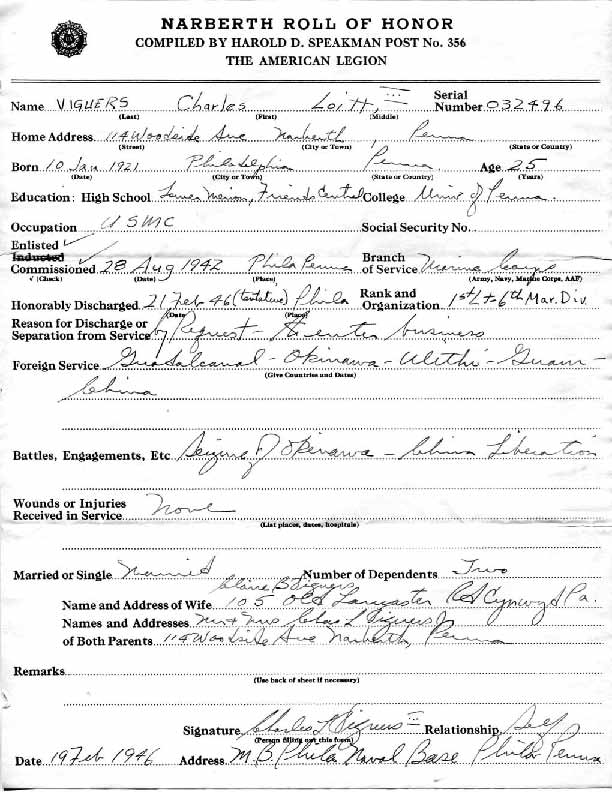 NARBERTH ROLL OF HONOR
COMPILED BY HAROLD D. SPEAKMAN POST No. 356
THE AMERICAN LEGION
Name VIGUERS Charles Loitt, III Serial Number 032496
(Last) (First) (Middle)
Home Address 114 Woodside Ave Narberth, Penna
(Street) (City or Town) (State or Country)
Born 10 Jan 1921 Philadelphia Penna Age 25
(Date) (City or Town) (State or Country) (Years)
Education: High School Lower Merion, Friends Central College Univ of Penna.
Occupation USMC Social Security No.
Enlisted ✓
Inducted
Commissioned 28 Aug 1942 Phila Penna Branch of Service Marine Corps
√ (Check) (Date) (Place) (Army, Navy, Marine Corps, AAF)
Honorably Discharged 21 Feb 46 (tentative) Phila Rank and Organization 1st Lt 6th Mar. Div.
(Date) (Place)
Reason for Discharge or
Separation from Service by Request - to enter business
Foreign Service Guadalcanal - Okinawa - Ulithi - Guam -
(Give Countries and Dates)
China
Battles, Engagements, Etc Seizure of Okinawa - China Liberation
Wounds or Injuries
Received in Service None
(List places, dates, hospitals)
Married or Single Married Number of Dependents Two
Claire B Viguers
Name and Address of Wife 105 Old Lancaster Rd Cynwyd Pa.
Names and Addresses Mr + Mrs Chas L Viguers Jr
of Both Parents 114 Woodside Ave Narberth, Penna
Remarks
(Use back of sheet if necessary)
Signature Charles L Viguers III Relationship Self
(Person filling out this form)
Date 19 Feb 1946 Address M.B. Phila Naval Base Phila Penna